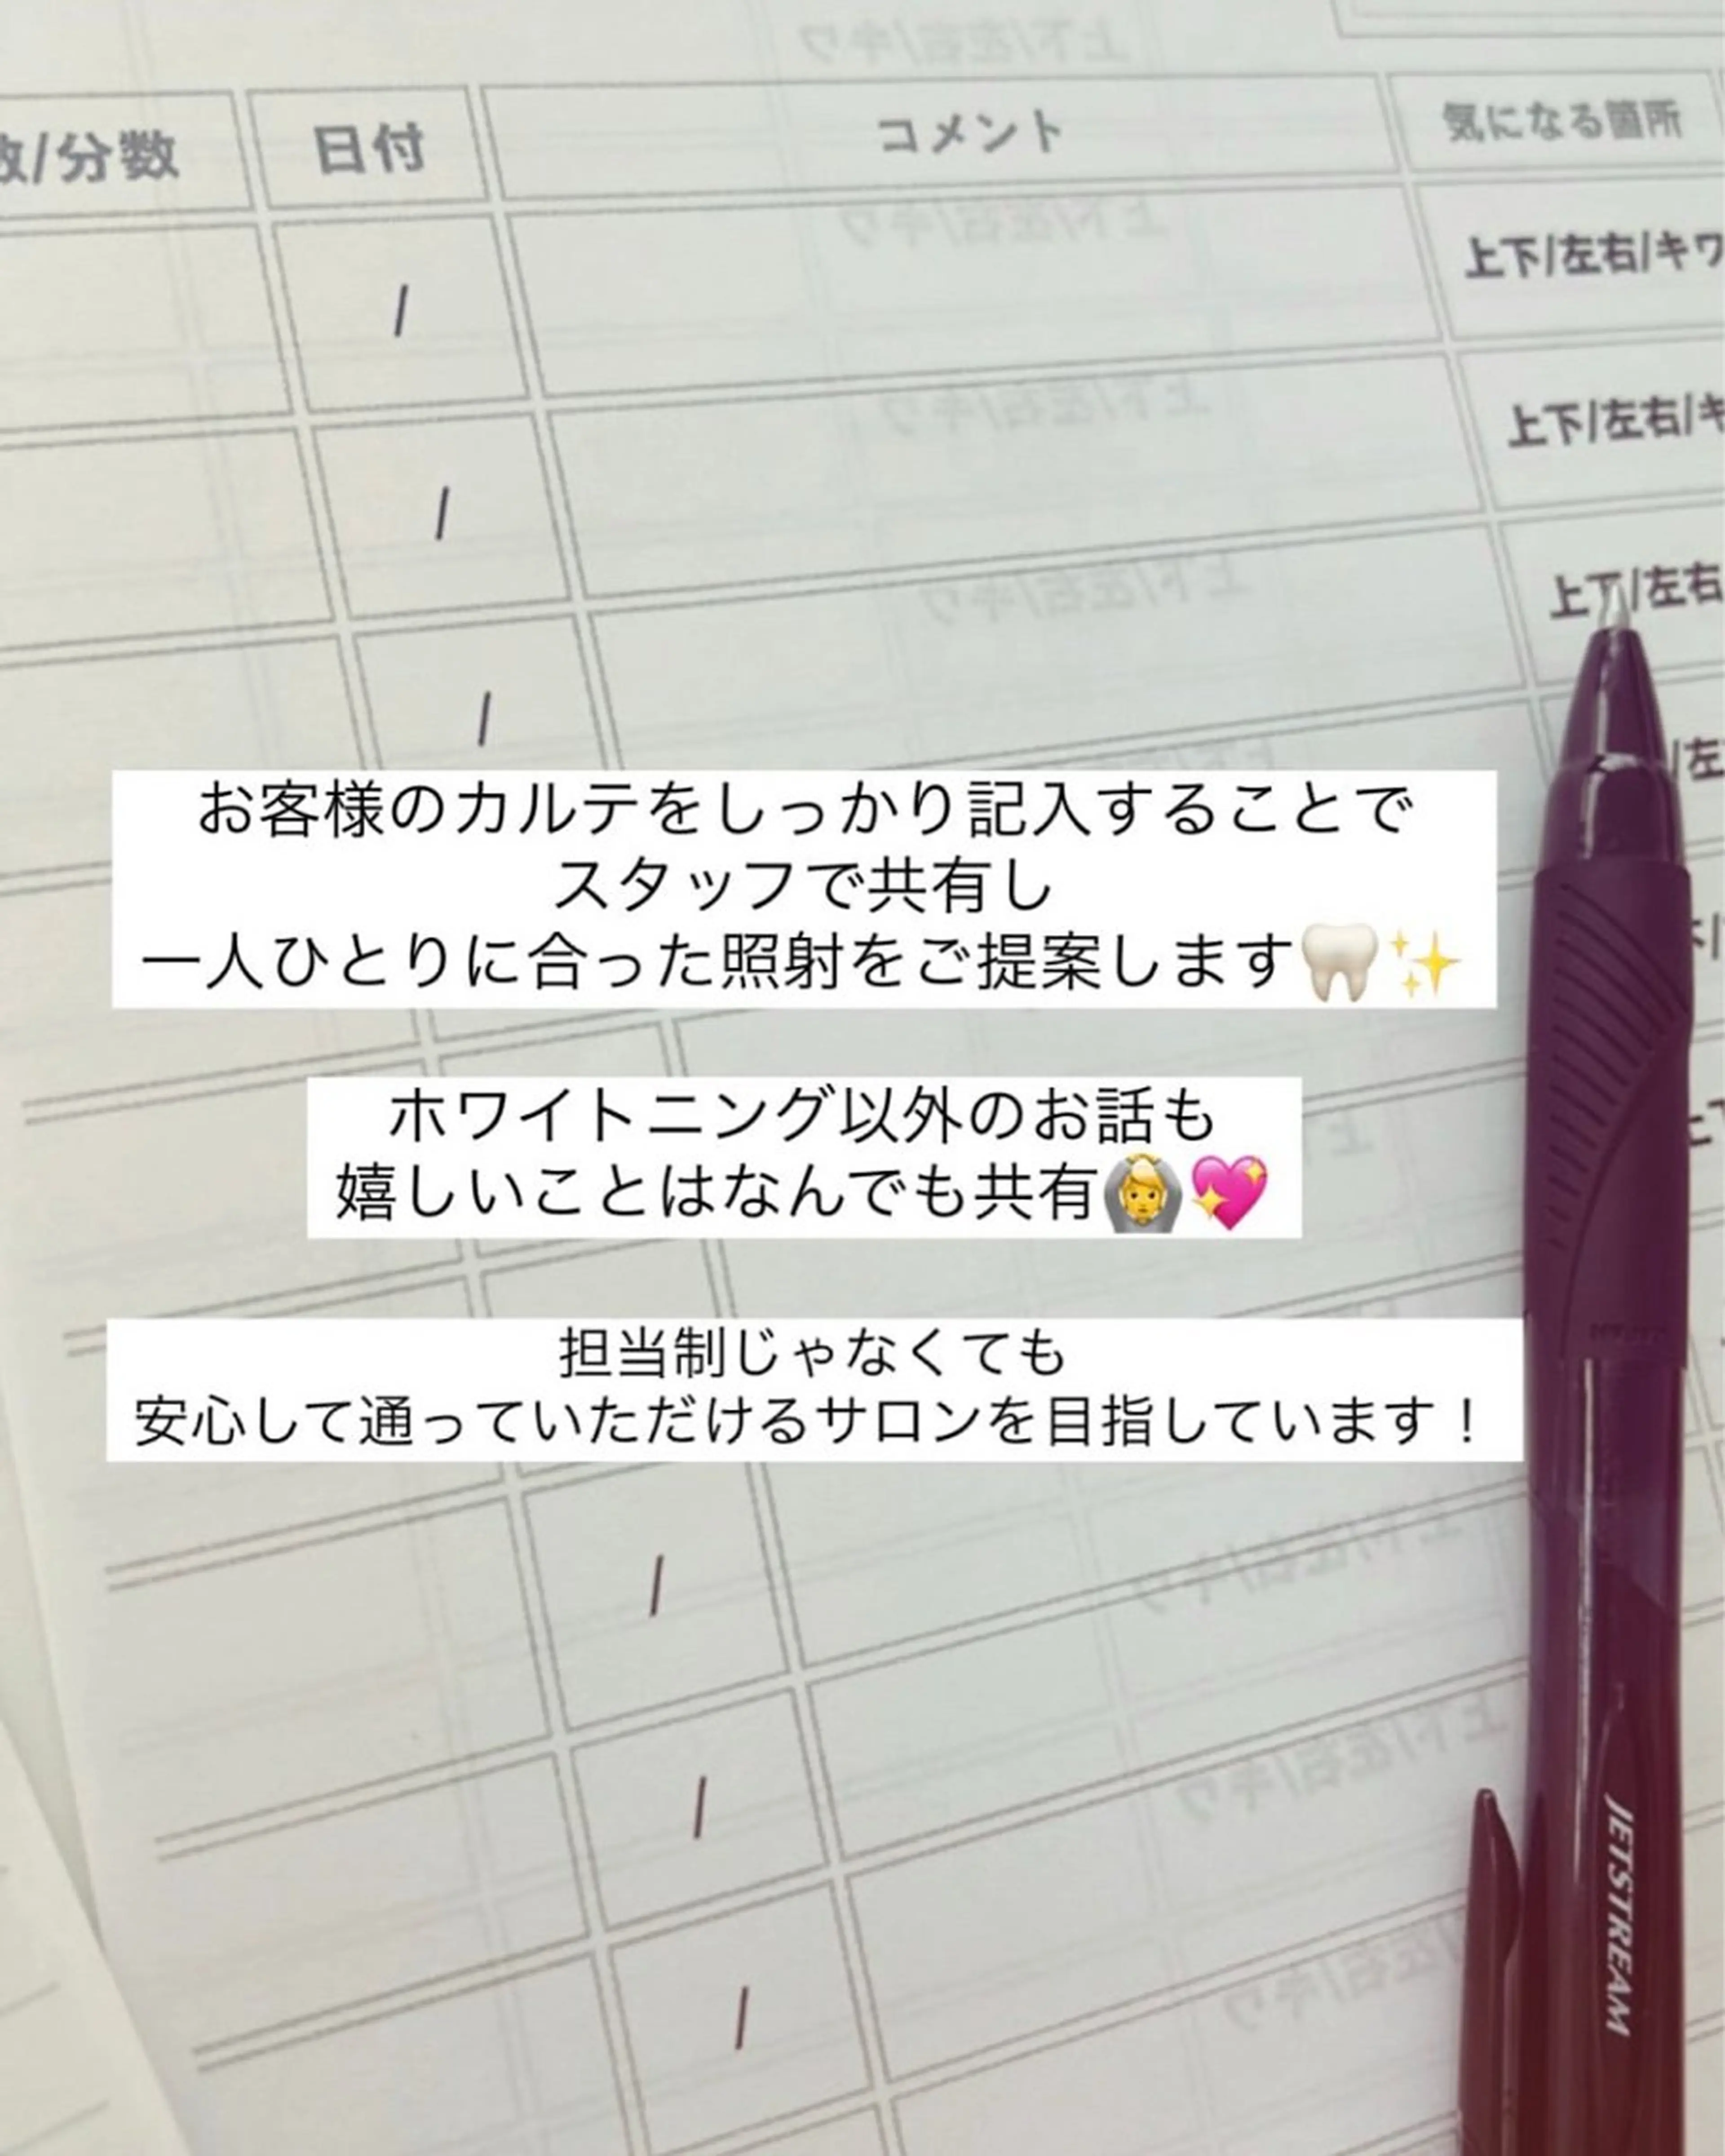 分数
日付
コメント
気になる箇所
/
上下/左右/キワ
/
上下/左右/キ
/
上下/左右
/左
お客様のカルテをしっかり記入することで
スタッフで共有し
一人ひとりに合った照射をご提案します🦷✨
ホワイトニング以外のお話も
嬉しいことはなんでも共有🙆💖
担当制じゃなくても
安心して通っていただけるサロンを目指しています！
/
/
/
JETSTREAM